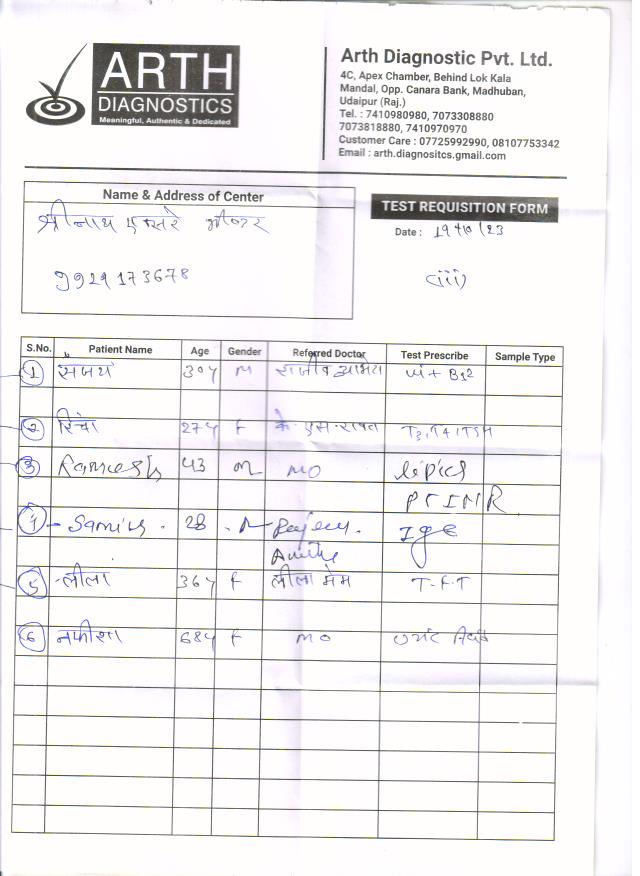 ARTH
DIAGNOSTICS
Meaningful, Authentic & Dedicated
Arth Diagnostic Pvt. Ltd.
4C, Apex Chamber, Behind Lok Kala
Mandal, Opp. Canara Bank, Madhuban,
Udaipur (Raj.)
Tel. : 7410980980, 7073308880
7073818880, 7410970970
Customer Care : 07725992990, 08107753342
Email : arth.diagnositcs.gmail.com
Name & Address of Center
श्री नाथ एक्सरे
9929173678
TEST REQUISITION FORM
Date : 19/10/23
(iii)
S.No. Patient Name Age Gender Referred Doctor Test Prescribe Sample Type
1 संजय 30y M राजीव vit B12
2 27y F के. एस. T3, T4, TSH
3 Ramesh 43 M MO Lipid
PT INR
4 28 M Rajeev IgE
5 लीला 36y F लीला मेम T-F-T
6 नफीसा 68y F MO यूरिक Acid